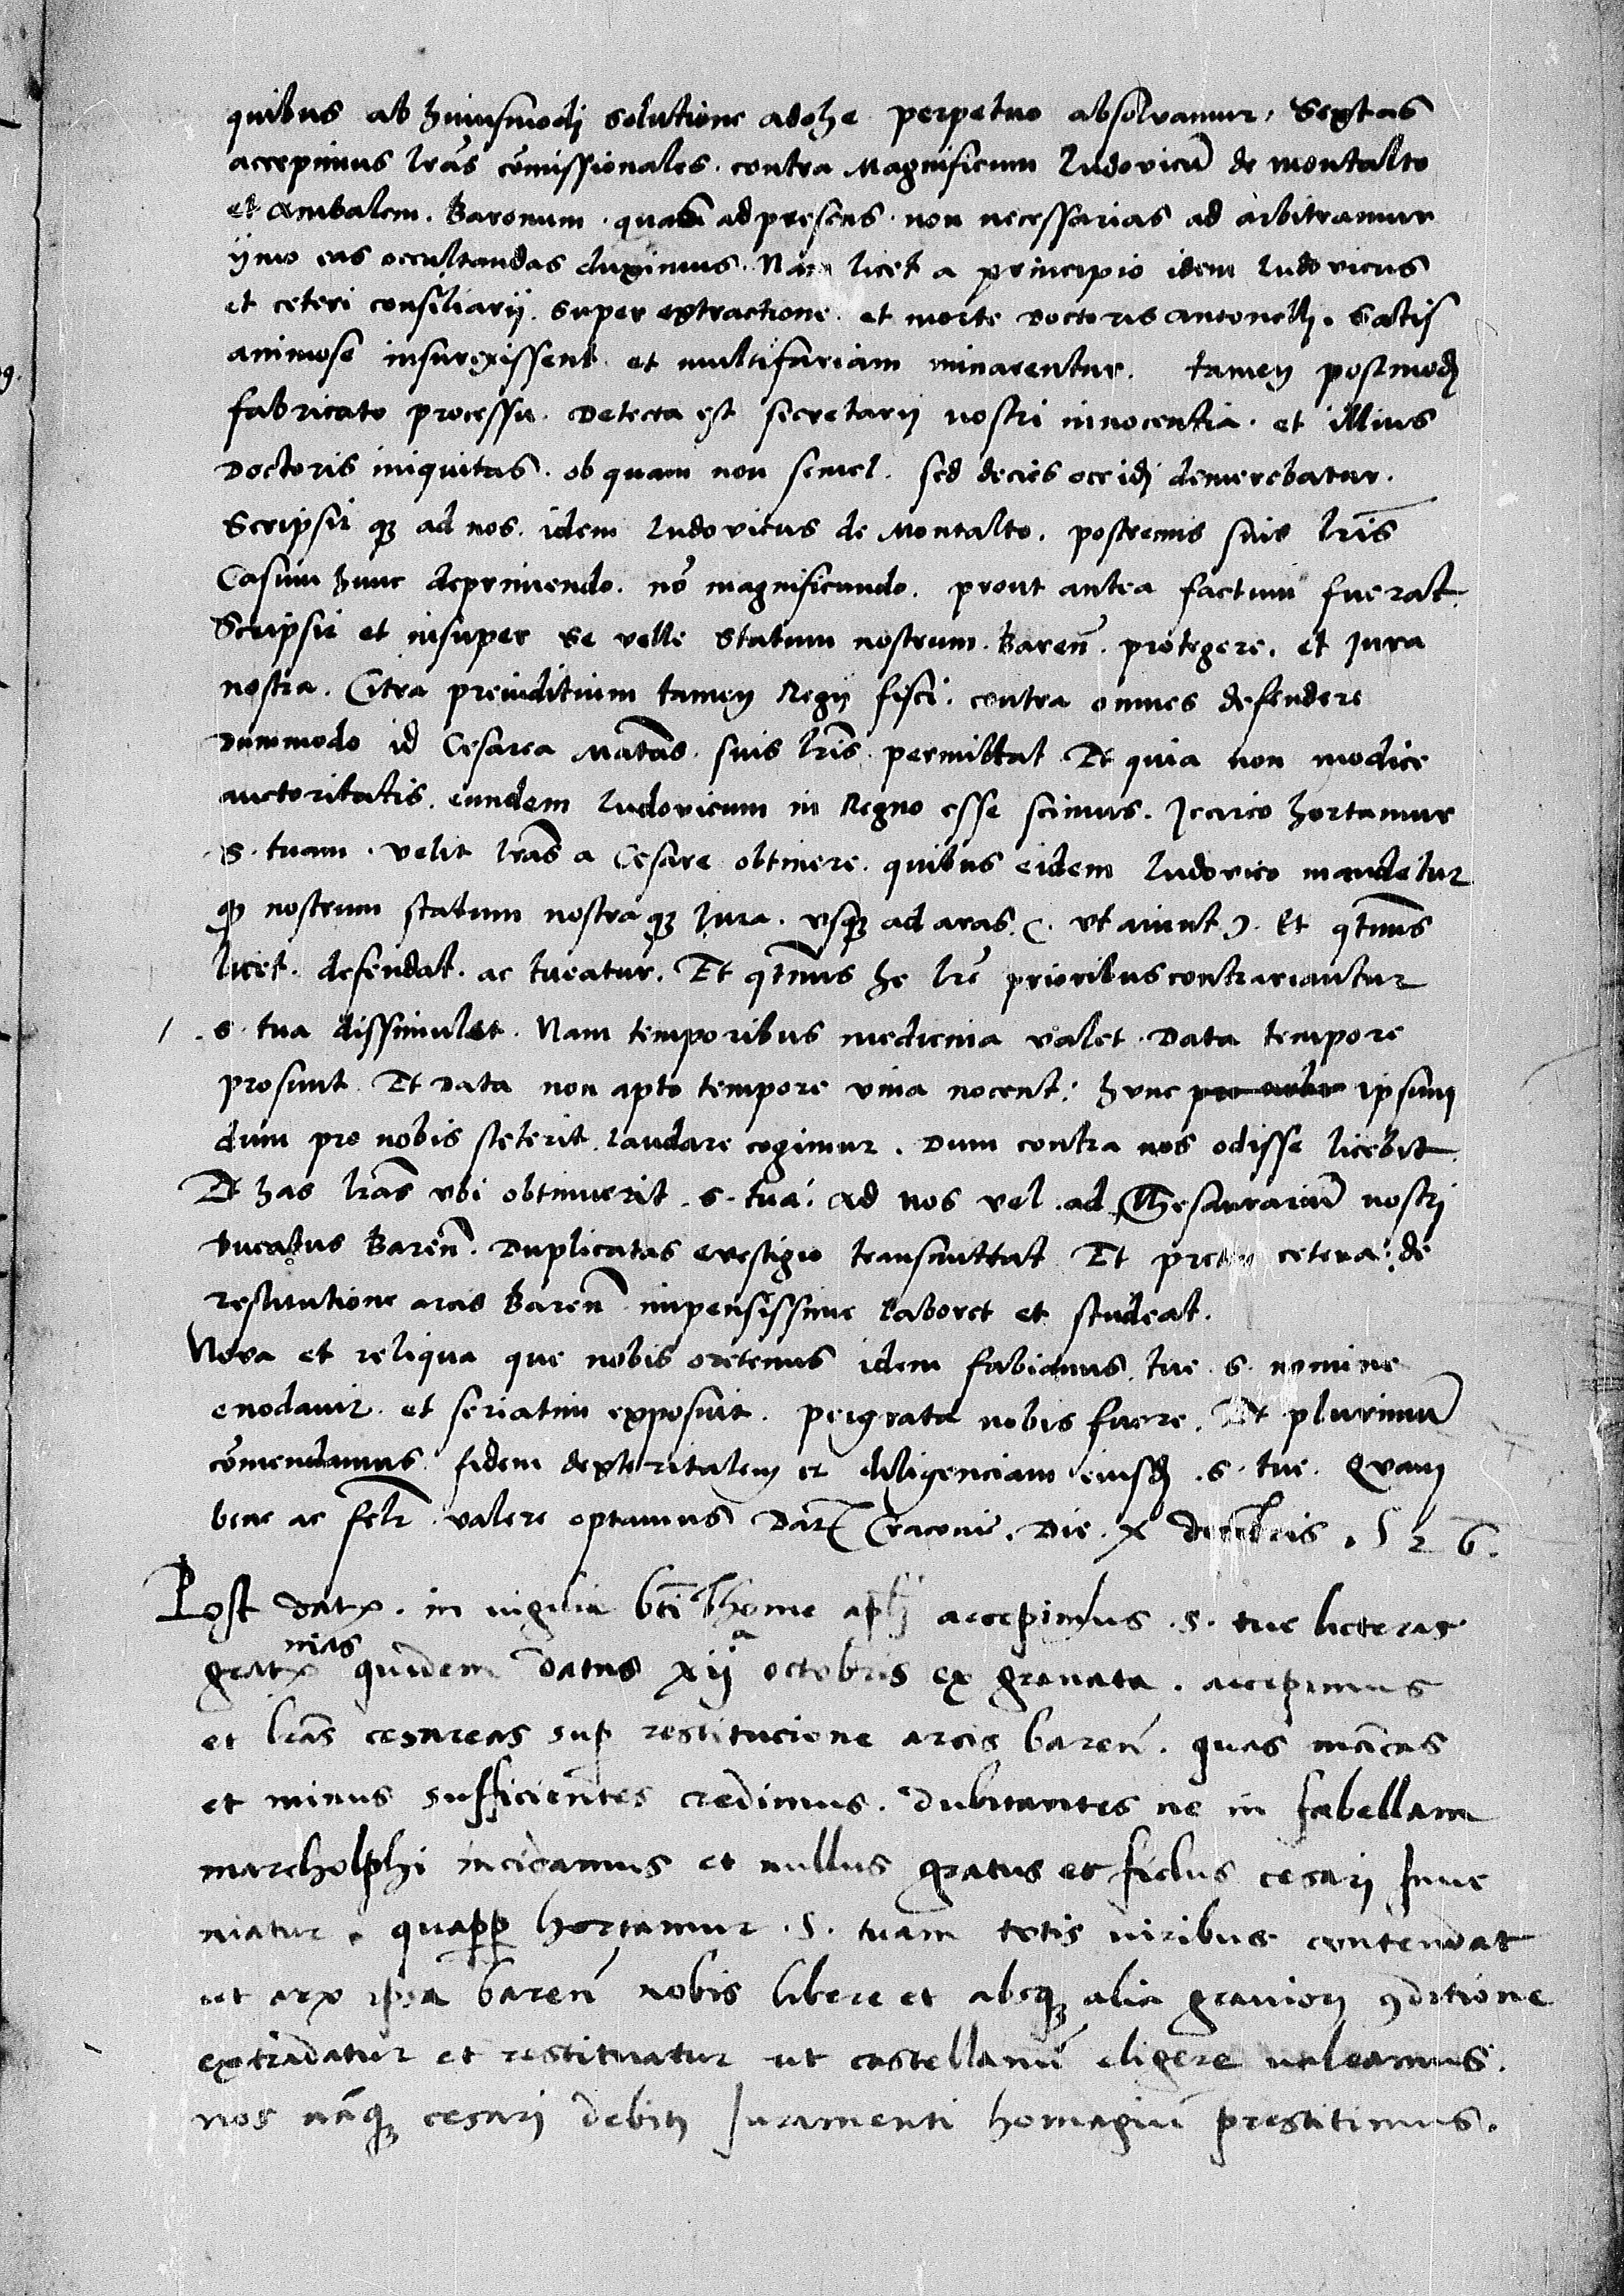 quibus ab huiusmodi solutione adohe perpetuo absolvamur, Sextas
accepimus lras comissionales . contra Magnificum Ludovicu de montalto
et Anibalem . Baronum . quas ad presens . non necessarias ad arbitramur
ijmo eas occultandas duximus . Nam licet a principio idem ludovicus
et ceteri consiliarij . super extractione . et morte doctoris antonelli . Satis
animose insurexissent . et multifariam minarentur . tamen postmod
fabricato processu . detecta est secretarij nostri innocentia . et illius
doctoris iniquitas . ob quam non semel . sed decies occidi demerebatur .
Scripsit q3 ad nos . idem ludovicus de Montalto . postremis suis lris
Casum hunc deprimendo . no magnificando . prout antea factum fuerat .
Scripsit et insuper se velle statum nostrum . Baren . protegere . et jura
nostra . Citra preiuditium tamen Regij fisci . contra omnes defendere
dummodo id Cesarea Matas . suis lris permittat Et quia non modice
auctoritatis . eundem ludovicum in Regno esse scimus . Iccirco hortamur
s . tuam . velit lras a Cesare obtinere . quibus eidem ludovico mandetur
q nostrum statum nostra q3 Jura . usq3 ad aras ( . ut aiunt ) . Et qtnus
licet . defendat . ac tueatur . Et qtnus he lre prioribus contrariantur
. s . tua dissimulet . Nam temporibus medicina valet . data tempore
prosunt . Et data non apto tempore vina nocent : hunc pro nobis ipsum
dum pro nobis steterit . laudare cogimur . dum contra nos odisse licebit .
Et has lras ubi obtinuerit . s . tua . ad nos vel . ad Thesaurariu nostri
ducatus Baren . duplicatas evestigio transmittat Et preter cetera : de
restitutione arcis Baren impensissime laboret et studeat .
Nova et reliqua que nobis oretenus idem fabianus . tue . s . nomine
enodavit . et seriatim exposuit . pergrata nobis fuere . Et plurimu
comendamus . fidem dexteritatem et diligenciam eiusd . s . tue . Quam
bene ac felr . valere optamus Dat Cracovie . Die . x decebris . 526 .
Post datx . in vigilia bti Thome apli accepimus . s . tue licteras
gratx mas quidem datas xij a octobris ex granata . accepimus
et lras cesareas sup restitucione arcis baren . quas mancas
et minus sufficientes credimus . dubitantes ne in fabellam
marcholphi incidamus et nullus gratus et fidus cesari Inve
niatur . quapp hortamur . S . tuam totis viribus contendat
ut arx ipsa baren nobis libere et absq3 alia graviori 9ditione
extradatur et restituatur ut castellanu eligere valeamus .
nos naq3 cesari debiti Juramenti homagiu prestitimus .